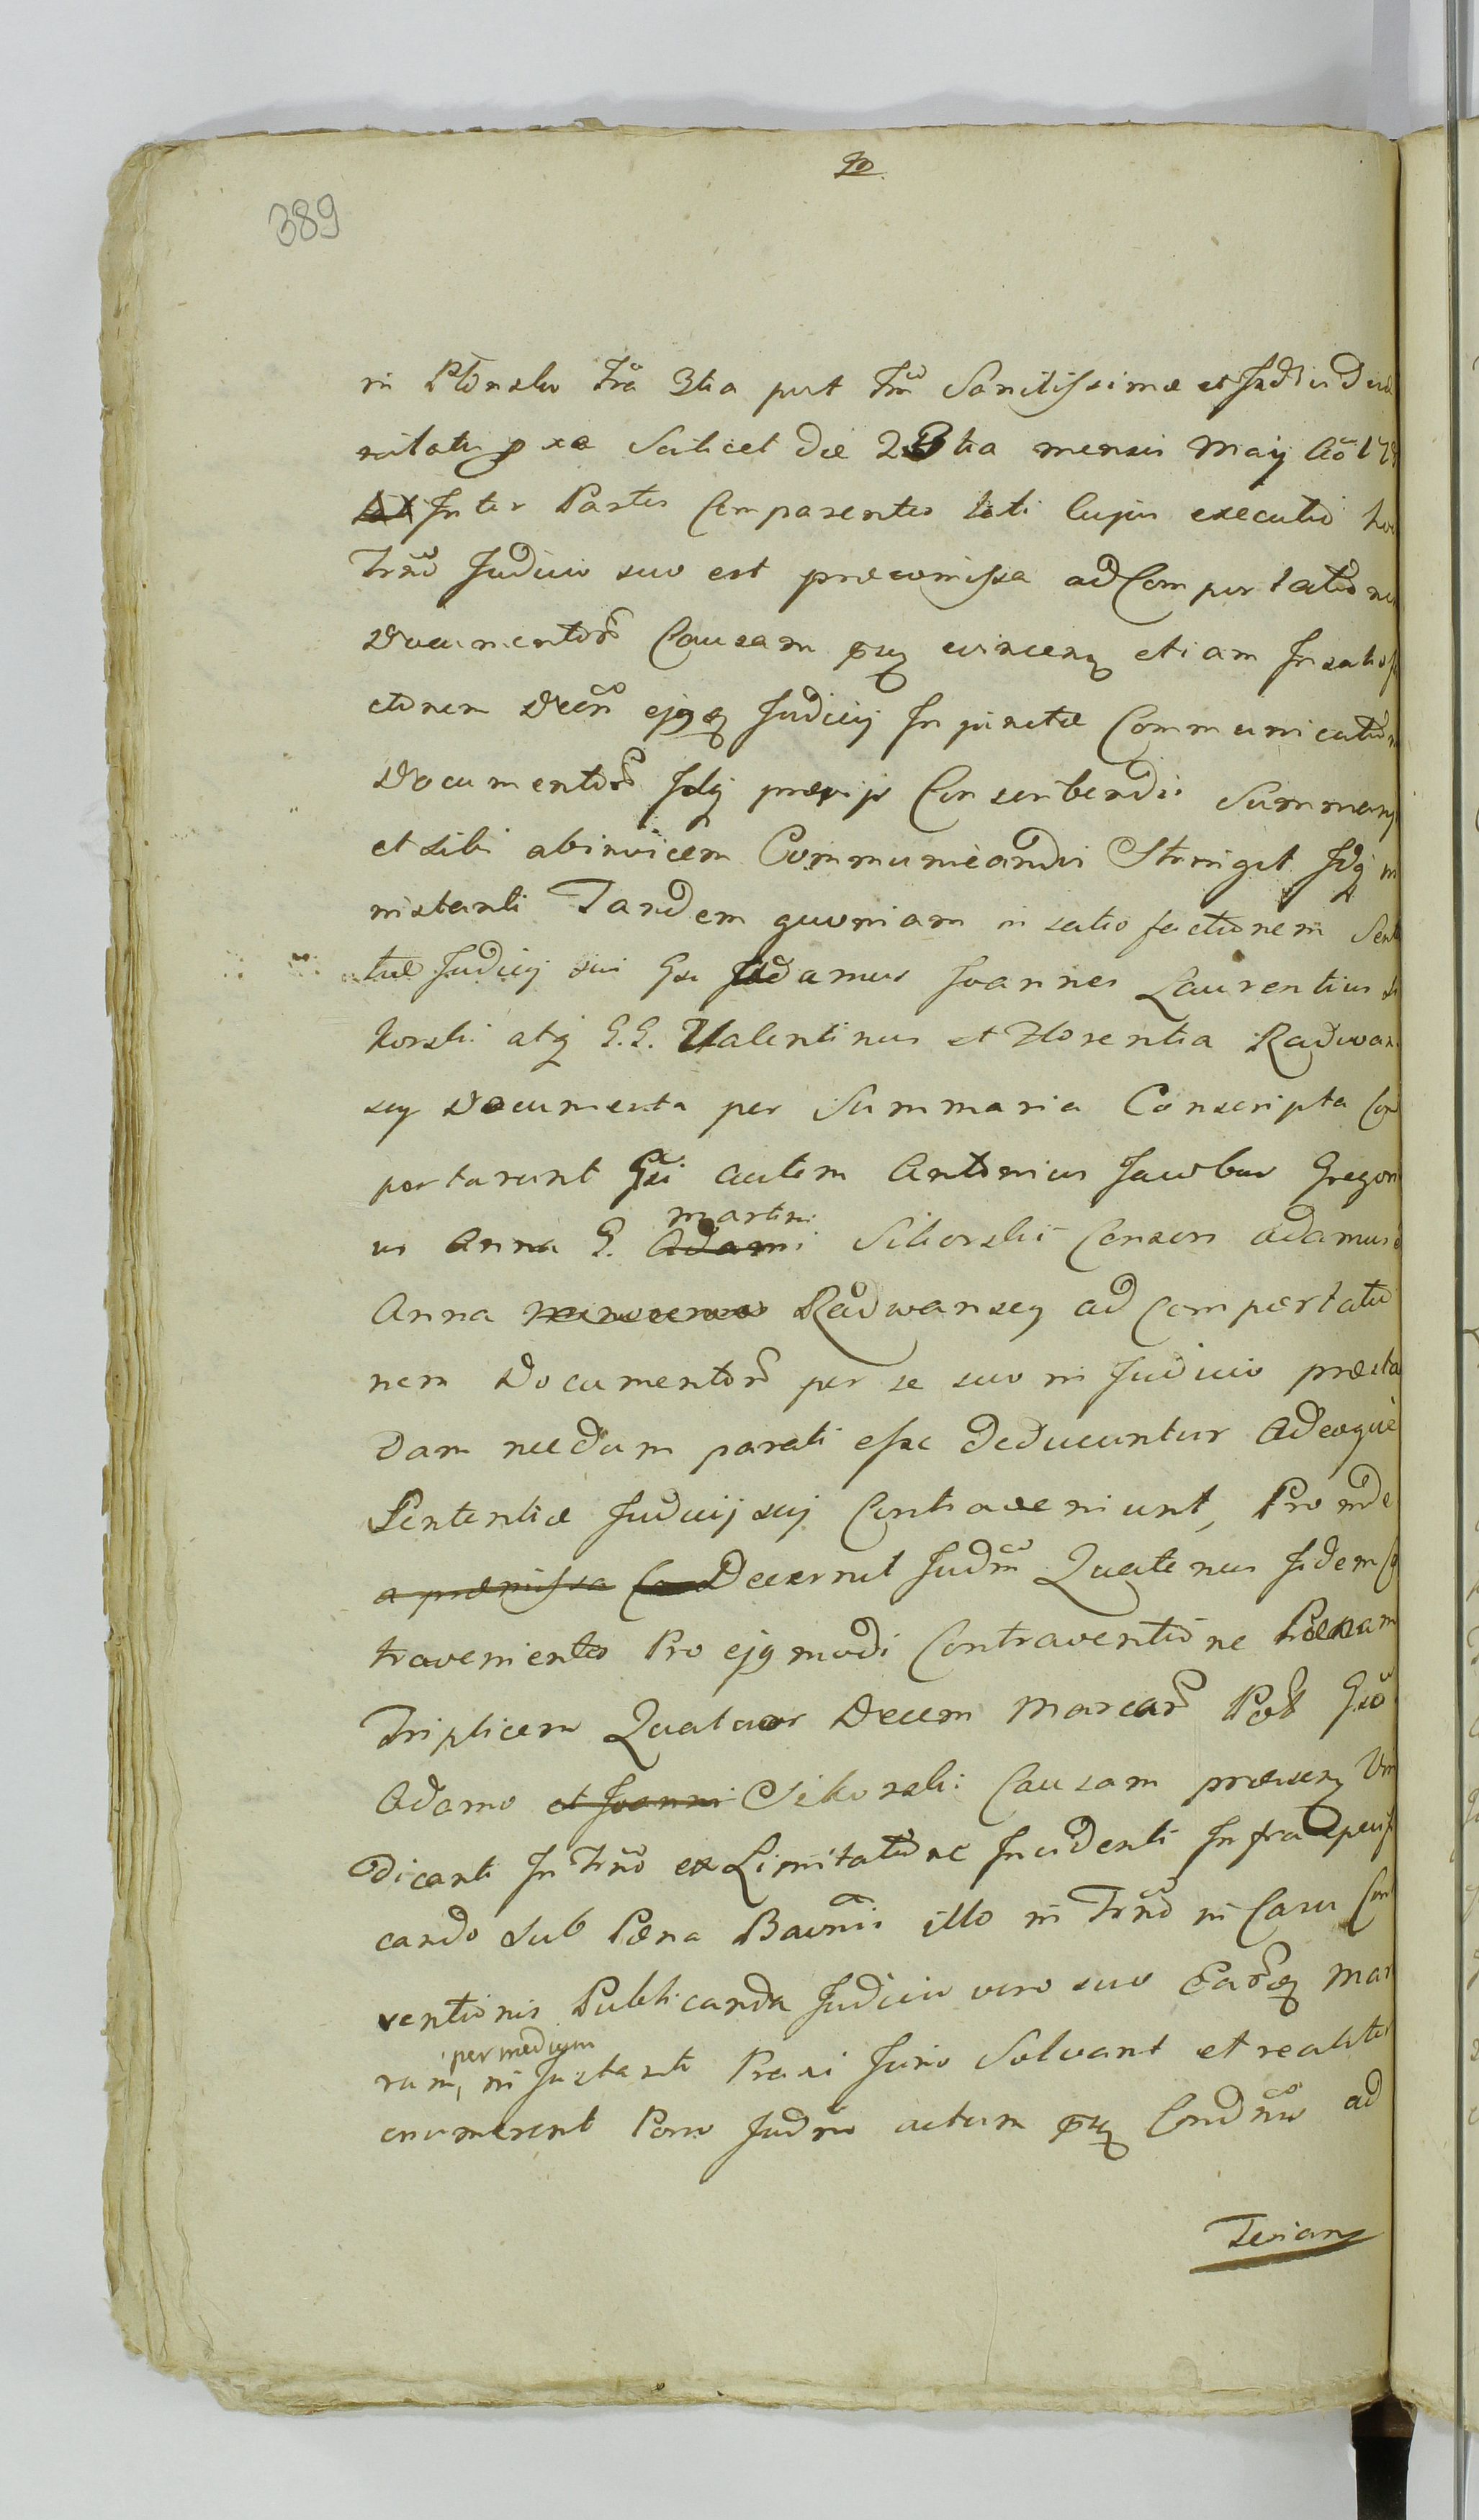 389
in Płonsko Fra 3tia post Fm Sanctissimæ et Individuæ
nitatis pxæ Scilicet die 23tia mensis Maij Aõ 17
Inter Partes Comparentes lati Cujus executio hoc
Trno Judicio suo est præcomissa ad Comportationem
Documentorũ Causam evincen etiam In satisfa
ctionem Decri ejusq Judicij Injunctæ Communicationi
Documentorũ Idq prævijs Conscribendis Summarijs
et sibi abinvicem Communicandis Stringit Idq in
instanti Tandem quoniam in satisfactionem Senten
tiæ Judicij sui Gsi Adamus Joannes Laurentius Si
korski atq G.G. Valentinus et Florentia Radwan
scy Documenta per Summaria Conscripta Com
portarunt Gsi autem Antonius Jacobus Gregori
us Anna G. Adami martini Sikorski Consors Adamus et
Anna Radwanscy ad Comportatio
nem Documentorũ per se suo in Judicio præstan
dam necdum parati esse deducuntur Adeoque
Sententiæ Judicij sui Contraveniunt, Proinde
a præmissa Decernit Judm Quatenus Iidem Con
travenientes Pro ejusmodi Contraventione Pænam
Triplicem Quatuor Decem Marcarũ Pol Gso
Adamo et Joanni Sikorski Causam præsen Vin
dicanti In Trno ex Limitatione Incidenti Infra specifi
cando sub Pæna Bannii illo in Trno in Casu Contra
ventionis Publicanda Judicio vero suo Earq Marca
rum, per medium in Instanti Praxi Juris Solvant et realiter
enumerent Porro Judm actum Condno ad
Tesian